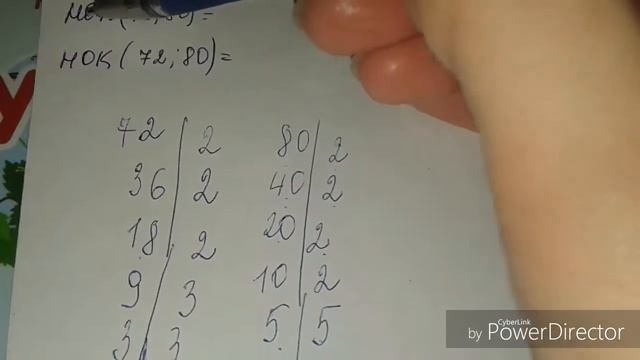 НОК(72;80)=
72 | 2 80 | 2
36 | 2 40 | 2
18 | 2 20 | 2
9 | 3 10 | 2
3 | 3 5 | 5
CyberLink
by PowerDirector